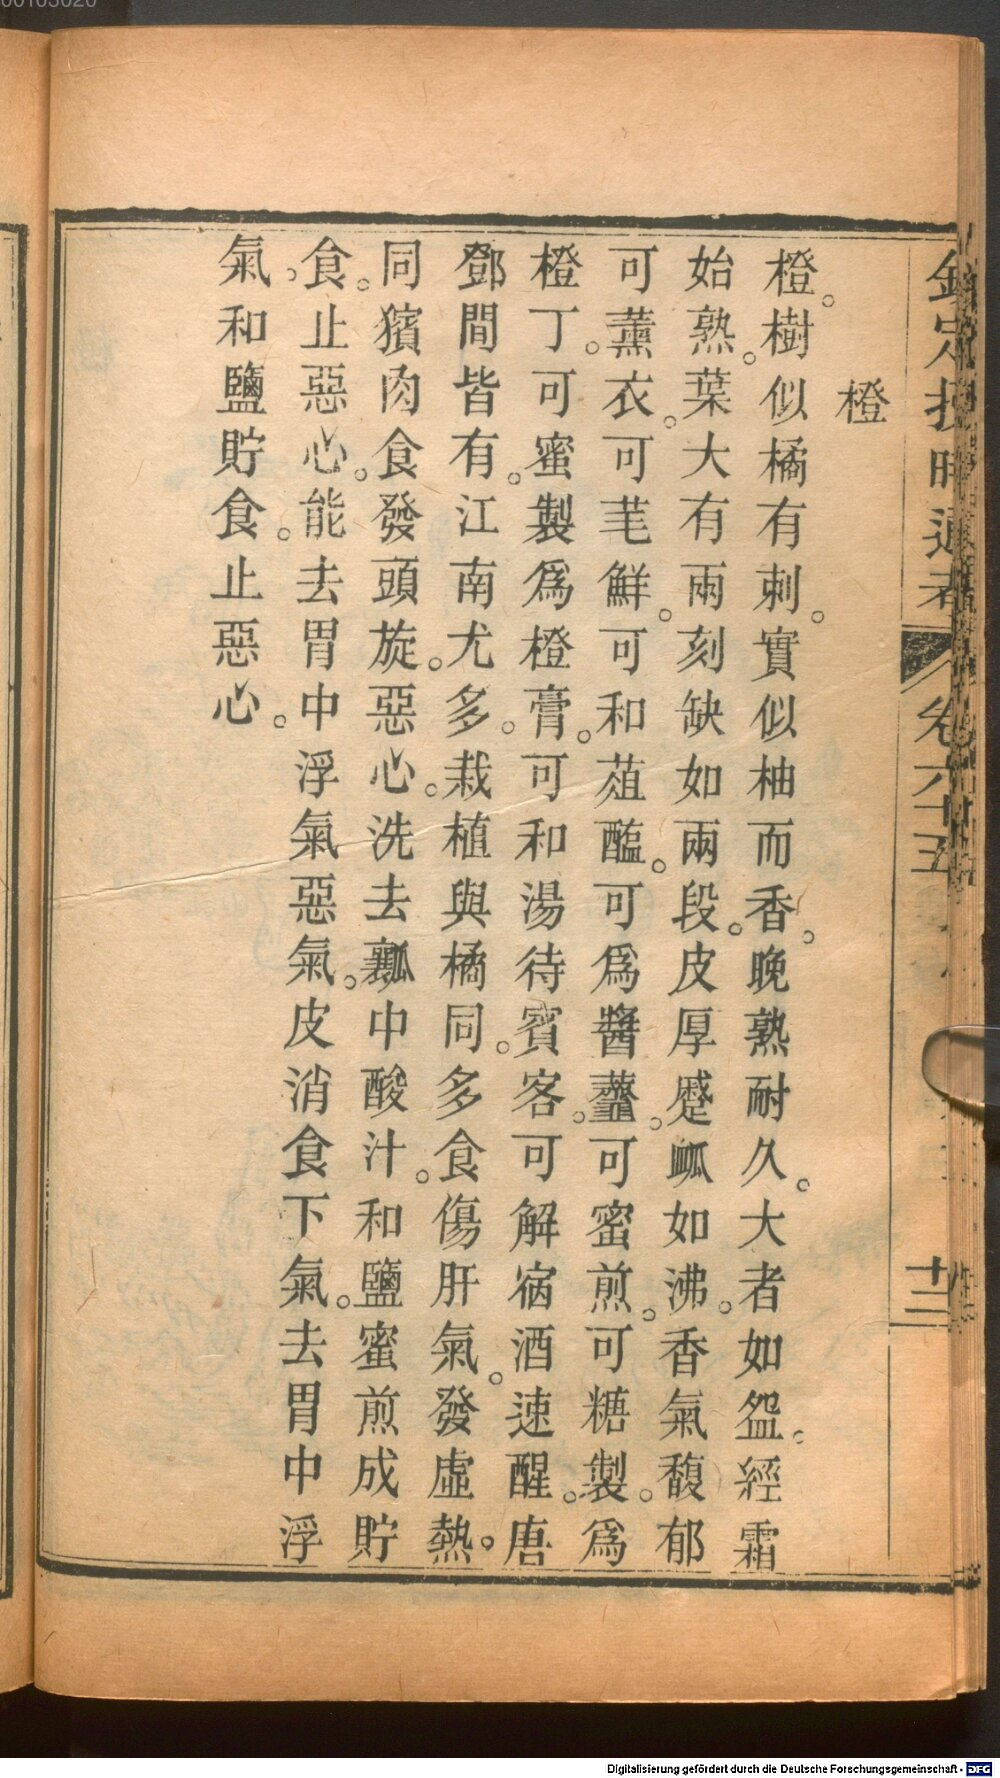 欽定授時通考 卷六十五 十二
橙
橙。樹似橘有刺。實似柚而香。晚熟耐久。大者如盌。經霜
始熟。葉大有兩刻缺如兩段。皮厚蹙衇如沸。香氣馥郁
可薰衣。可芼鮮。可和菹醢。可爲醬虀。可蜜煎。可糖製。爲
橙丁。可蜜製爲橙膏。可和湯待賓客。可解宿酒速醒。唐
鄧間皆有。江南尤多。栽植與橘同。多食傷肝氣。發虛熱。
同獱肉食發頭旋。惡心。洗去瓤中酸汁。和鹽蜜煎成貯
食。止惡心。能去胃中浮氣惡氣。皮消食下氣。去胃中浮
氣。和鹽貯食。止惡心。
Digitalisierung gefördert durch die Deutsche Forschungsgemeinschaft - DFG